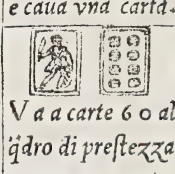 e caua vna carta.
V a a carte 6 0 al
q̃dro di preſtezza